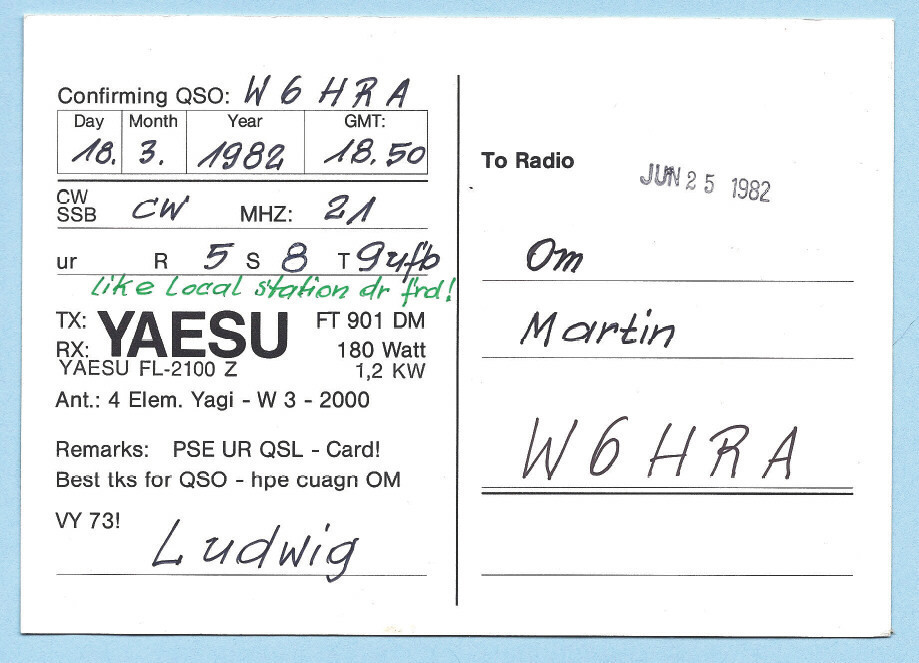 Confirming QSO: W6HRA
Day Month Year GMT:
18. 3. 1982 18.50
CW
SSB CW MHZ: 21
ur R 5 S 8 T 9ufb
like Local station dr frd!
TX: YAESU FT 901 DM
RX: 180 Watt
YAESU FL-2100 Z 1,2 KW
Ant.: 4 Elem. Yagi - W 3 - 2000
Remarks: PSE UR QSL - Card!
Best tks for QSO - hpe cuagn OM
VY 73!
Ludwig
To Radio
JUN 25 1982
Om
Martin
W6HRA